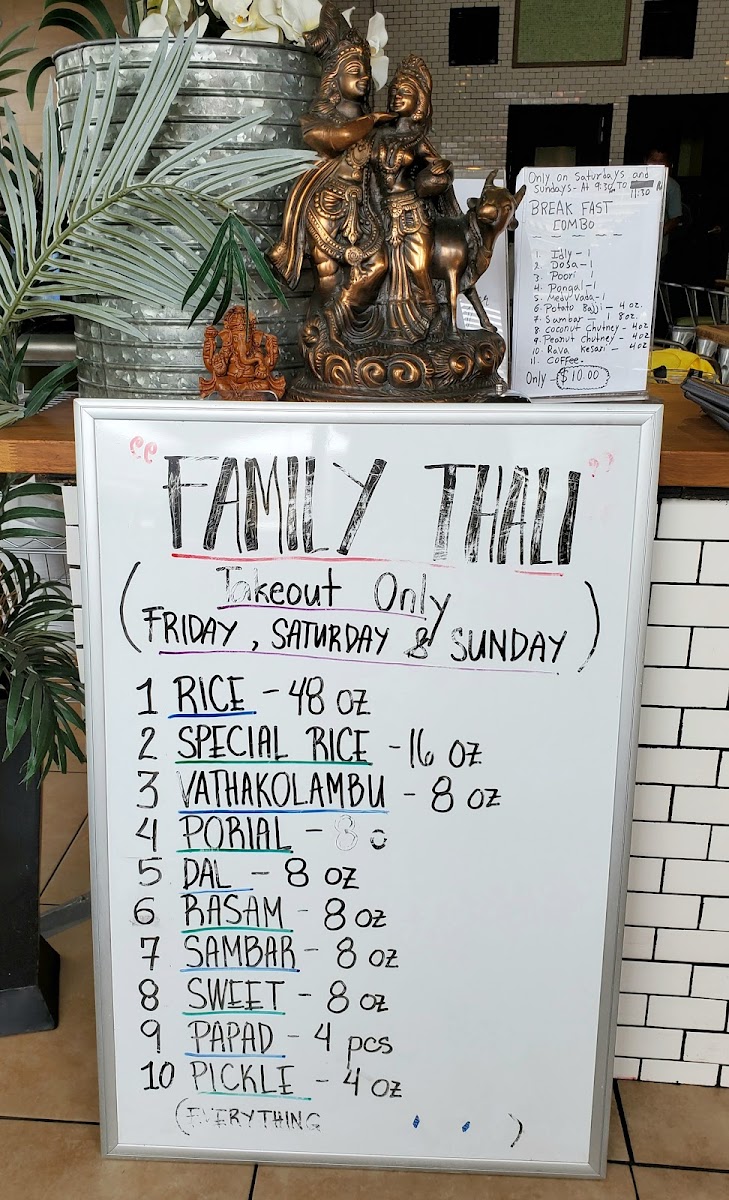 Only on Saturdays and
Sundays - At 9:30 TO 11:30
BREAK FAST
COMBO
1. Idly - 1
2. Dosa - 1
3. Poori 1
4. Pongal - 1
5. Medu Vada - 1
6. Potato Bajji - 4 oz.
7. Sambar - 1 8 oz.
8. Coconut Chutney - 4 oz
9. Peanut Chutney - 4 oz
10. Rava Kesari - 4 oz
11. COFFEE.
Only - $10.00
"FAMILY THALI"
(Takeout Only
FRIDAY, SATURDAY & SUNDAY)
1 RICE - 48 oz
2 SPECIAL RICE - 16 oz
3 VATHAKOLAMBU - 8 oz
4 PORIAL - 8 o
5 DAL - 8 oz
6 RASAM - 8 oz
7 SAMBAR - 8 oz
8 SWEET - 8 oz
9 PAPAD - 4 pcs
10 PICKLE - 4 oz
(EVERYTHING )